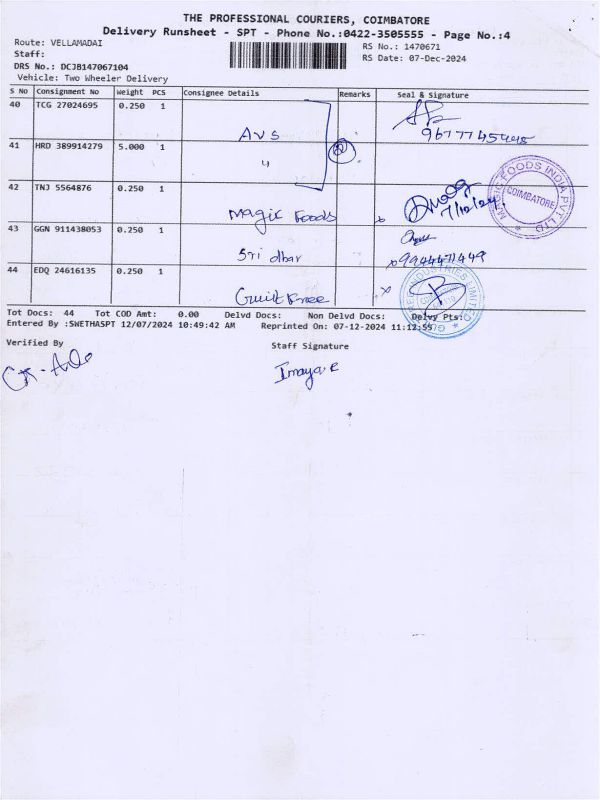 THE PROFESSIONAL COURIERS, COIMBATORE
Delivery Runsheet - SPT - Phone No.:0422-3505555 - Page No.:4
Route: VELLAMADAI
RS No.: 1470671
Staff:
RS Date: 07-Dec-2024
DRS No.: DCJB147067104
Vehicle: Two Wheeler Delivery
S No Consignment No Weight PCS Consignee Details Remarks Seal & Signature
40 TCG 27024695 0.250 1 AVS
41 HRD 389914279 5.000 1 "
42 TNJ 5564876 0.250 1 Magic Foods 7/12/24
MAGIC FOODS INDIA PVT LTD
COIMBATORE
43 GGN 911438053 0.250 1 Sri dhar 9944471449
44 EDQ 24616135 0.250 1 Guilt Free
INDUSTRIES LIMITED
Tot Docs: 44 Tot COD Amt: 0.00 Delvd Docs: Non Delvd Docs: Delvy Pts:
Entered By :SWETHASPT 12/07/2024 10:49:42 AM Reprinted On: 07-12-2024 11:12:55
Verified By
Staff Signature